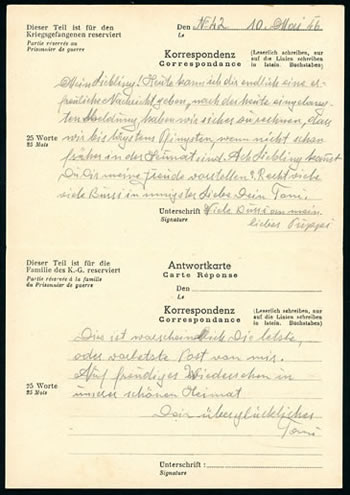 Dieser Teil ist für den
Kriegsgefangenen reserviert
Partie réservée au
Prisonnier de guerre
Den № 42 10. Mai 46
Le
Korrespondenz
Correspondance
(Leserlich schreiben, nur
auf die Linien schreiben
in latein. Buchstaben)
Mein Liebling! Heute kann ich dir endlich eine er-
freuliche Nachricht geben, nach der heute
Meldung haben wir sicher zu rechnen, dass
wir bis Pfingsten, wenn nicht schon
früher in der Heimat sind. Ach Liebling kannst
Du Dir meine Freude vorstellen? Recht viele
viele Bussi in innigster Liebe Dein Toni.
25 Worte
25 Mots
Unterschrift Viele Bussi an mein
Signature
liebes Puppi
Dieser Teil ist für die
Familie des K.-G. reserviert
Partie réservée à la famille
du Prisonnier de guerre
Antwortkarte
Carte Réponse
Den
Le
Korrespondenz
Correspondance
(Leserlich schreiben, nur
auf die Linien schreiben
in latein. Buchstaben)
Dies ist warscheinlich die letzte,
oder vorletzte Post von mir.
Auf freudiges Wiedersehen in
unserer schönen Heimat
Dein überglücklicher
Toni
25 Worte
25 Mots
Unterschrift :
Signature